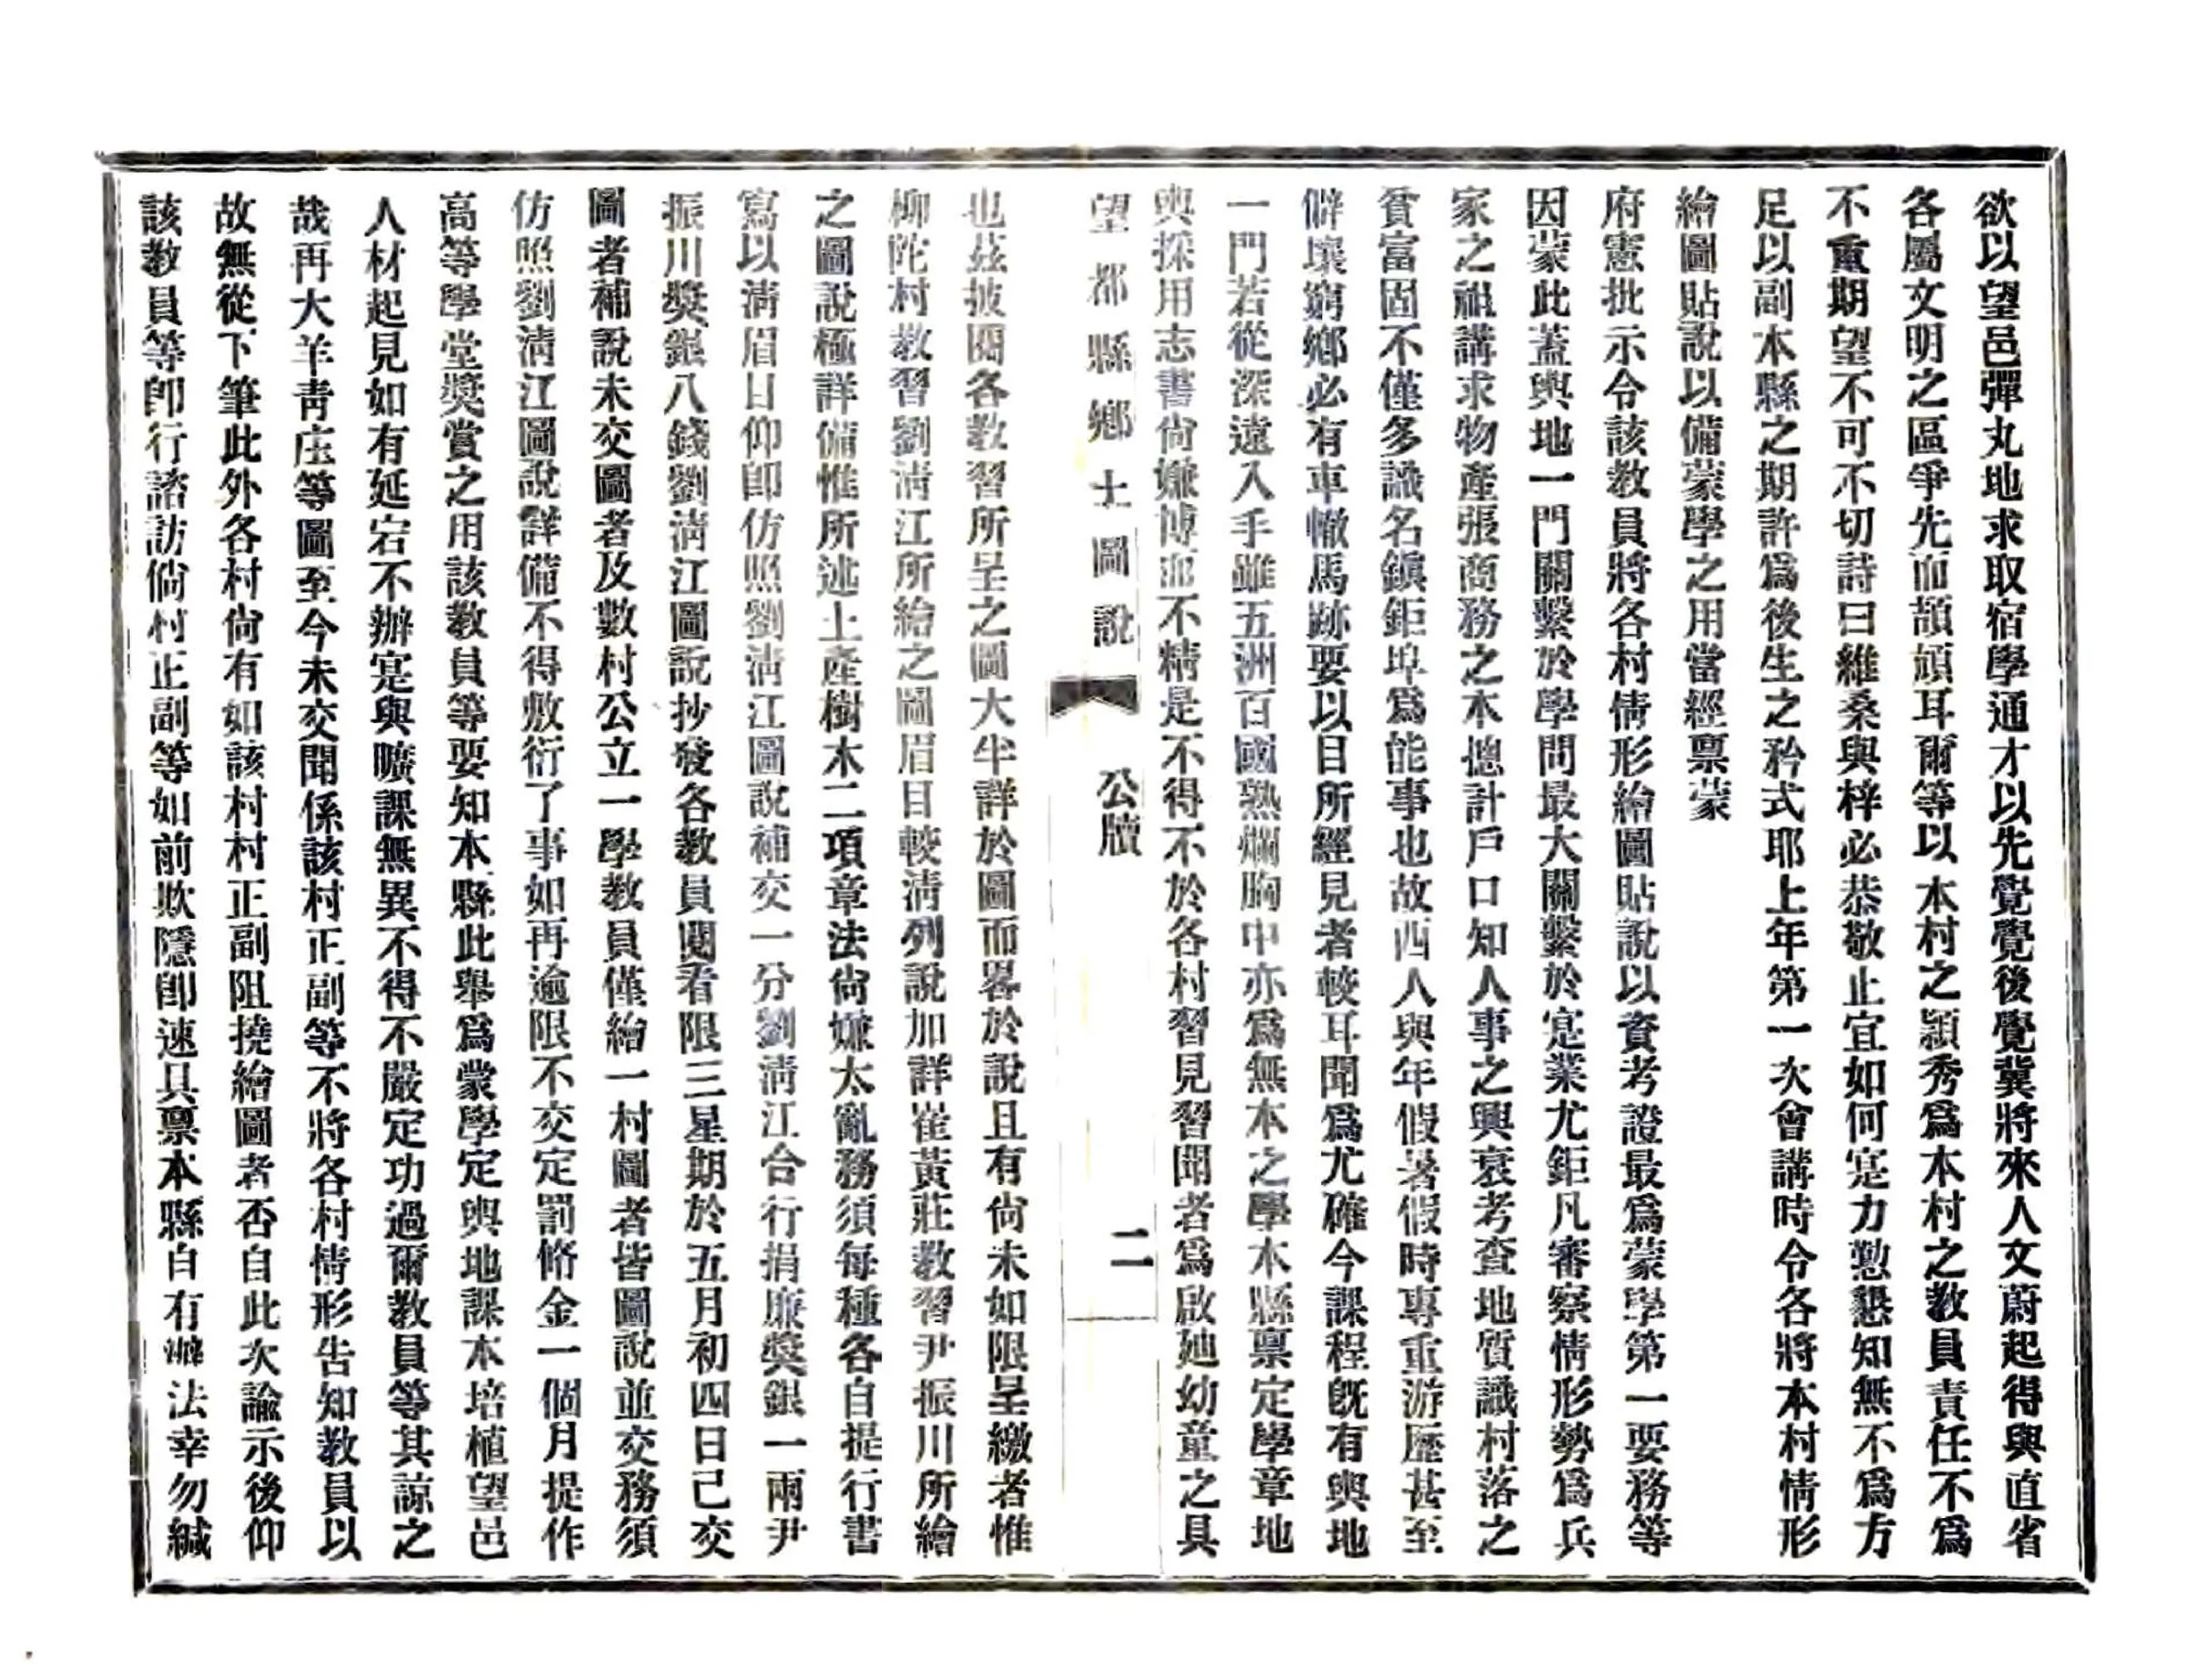 欲以望邑彈丸地求取宿學通才以先覺覺後覺冀將來人文蔚起得與直省
各屬文明之區爭先而頡頏耳爾等以本村之穎秀爲本村之教員責任不爲
不重期望不可不切詩曰維桑與梓必恭敬止宜如何寔力懃懇知無不爲方
足以副本縣之期許爲後生之矜式耶上年第一次會講時令各將本村情形
繪圖貼說以備蒙學之用當經禀蒙
府憲批示令該教員將各村情形繪圖貼說以資考證最爲蒙學第一要務等
因蒙此蓋輿地一門關繫於學問最大關繫於寔業尤鉅凡審察情形勢爲兵
家之祖講求物產張商務之本揔計戶口知人事之興衰考查地質識村落之
貧富固不僅多識名鎭鉅埠爲能事也故西人與年假暑假時專重游歷甚至
僻壤窮鄉必有車轍馬跡要以目所經見者較耳聞爲尤確今課程旣有輿地
一門若從深遠入手雖五洲百國熟爛胸中亦爲無本之學本縣禀定學章地
輿採用志書尙嫌博而不精是不得不於各村習見習聞者爲啟廸幼童之具
望都縣鄉土圖說　公牘　二
也茲披閱各教習所呈之圖大半詳於圖而畧於說且有尙未如限呈繳者惟
柳陀村教習劉淸江所繪之圖眉目較淸列說加詳崔黃莊教習尹振川所繪
之圖說極詳備惟所述土產樹木二項章法尙嫌太亂務須每種各自提行書
寫以淸眉目仰卽仿照劉淸江圖說補交一分劉淸江合行捐廉獎銀一兩尹
振川獎銀八錢劉淸江圖說抄發各教員閱看限三星期於五月初四日已交
圖者補說未交圖者及數村公立一學教員僅繪一村圖者皆圖說並交務須
仿照劉淸江圖說詳備不得敷衍了事如再逾限不交定罰脩金一個月提作
高等學堂獎賞之用該教員等要知本縣此舉爲蒙學定輿地課本培植望邑
人材起見如有延宕不辦寔與曠課無異不得不嚴定功過爾教員等其諒之
哉再大羊靑庄等圖至今未交聞係該村正副等不將各村情形告知教員以
故無從下筆此外各村尙有如該村村正副阻撓繪圖者否自此次諭示後仰
該教員等卽行諮訪倘村正副等如前欺隱卽速具禀本縣自有辦法幸勿緘